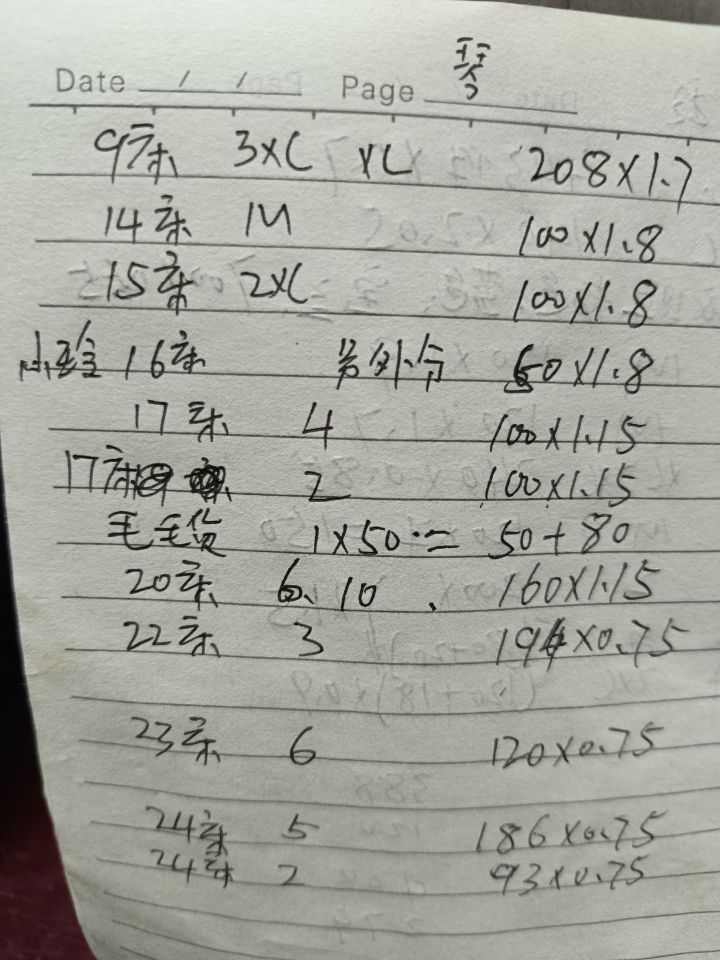 Date / / Page 琴
9号 3×C ×C 208×1.7
14号 1M 100×1.8
15号 2×C 100×1.8
16号 60×1.8
17号 4 100×1.15
17号 2 100×1.15
毛毛货 1×50 = 50+80
20号 6、10、 160×1.15
22号 3 194×0.75
23号 6 120×0.75
24号 5 186×0.75
24号 2 93×0.75